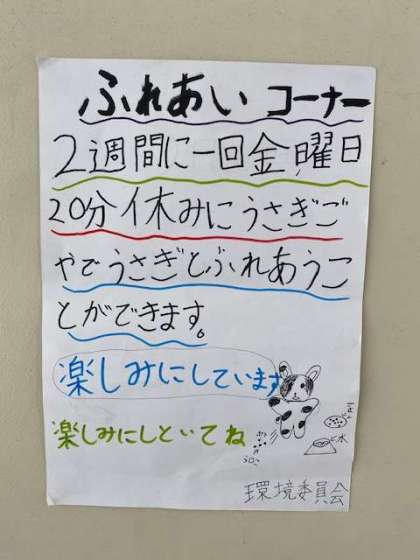 ふれあいコーナー
2週間に一回金曜日
20分休みにうさぎご
やでうさぎとふれあうこ
とができます。
楽しみにしています
楽しみにしといてね
水
環境委員会